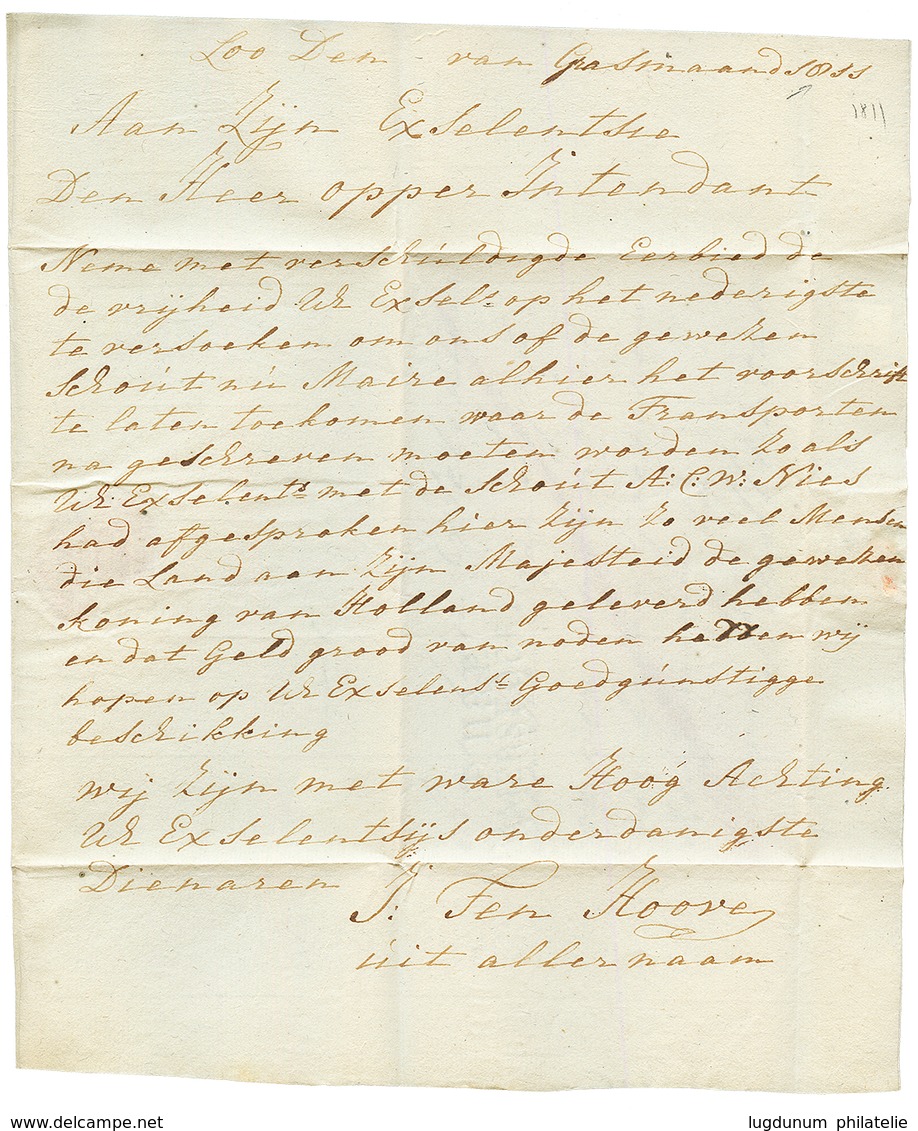 Loo Den - van Grasmaand 1811
1811
Aan Zijn Exselentsie
Den Heer opper Intendant
Neme met verschuldigde Eerbied de
de vrijheid Ul Exsels. op het nederigste
te versoeken om ons of de geweken
Schout nu Maire alhier het voorschrift
te laten toekomen waar de Transporten
na geschreven moeten worden zo als
Ul: Exselents met de Schout A: C: W: Nies
had afgesproken hier zijn zo veel Mensen
die Land aan zijn Majesteid de geweken
koning van Holland geleverd hebben
en dat Geld grood van noden hebben wij
hopen op Ul Exselenst. Goedgunstigge
beschikking
wij zijn met ware Hoog Achting
Ul Exselentsijs onderdanigste
Dienaren
J: Ten Hoove
uit aller naam
www.delcampe.net
lugdunum philatelie